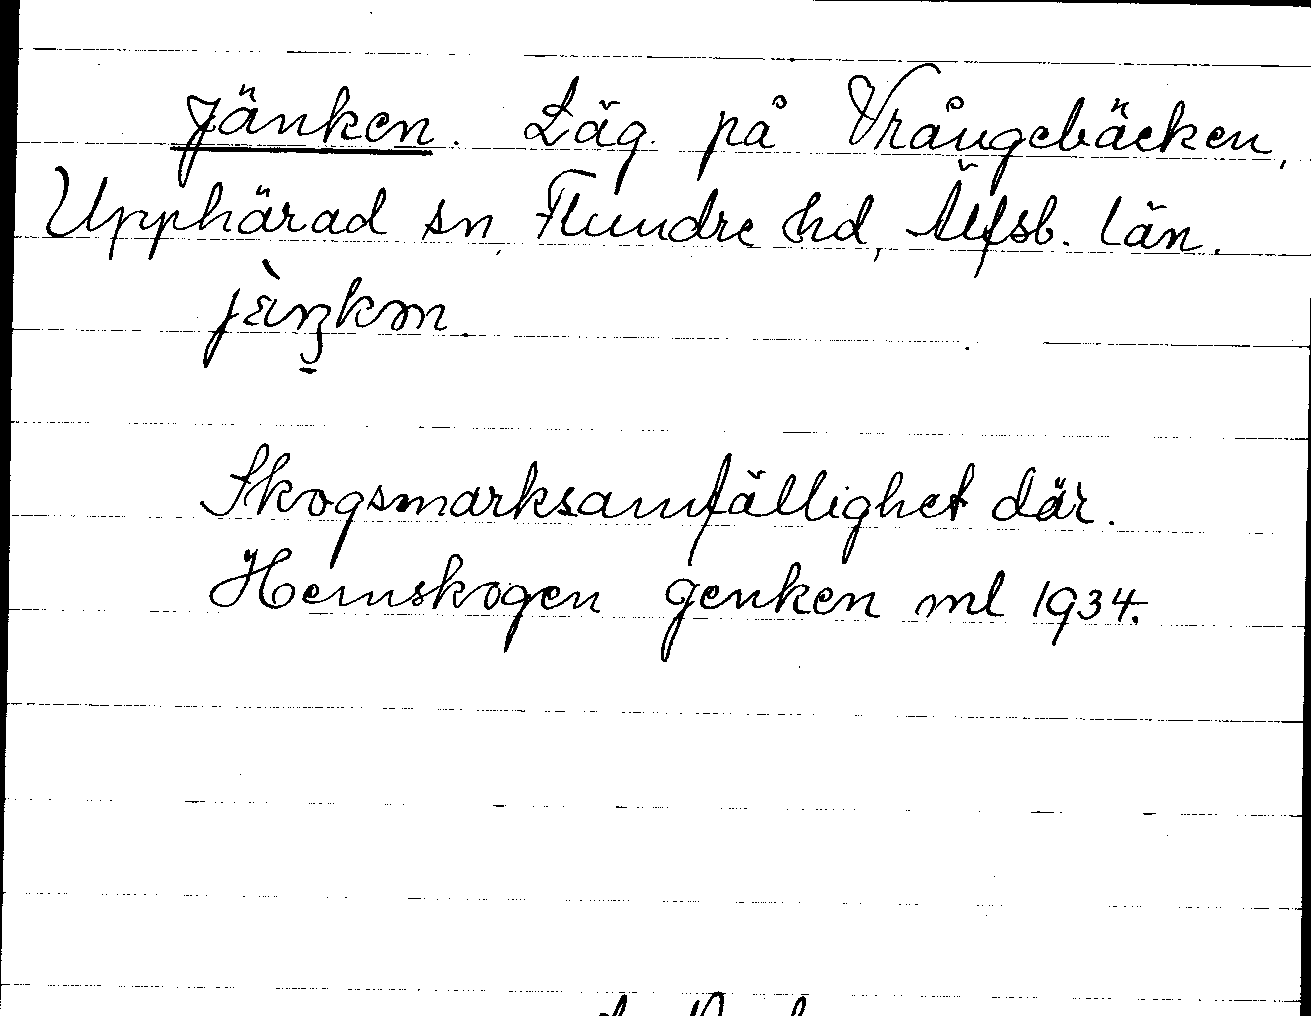 Jänken. Läg. på Vrångebäcken,
Upphärad sn, Flundre hd, Älfsb. län.
Skogsmarksamfällighet där.
Hemskogen genken ml 1934.